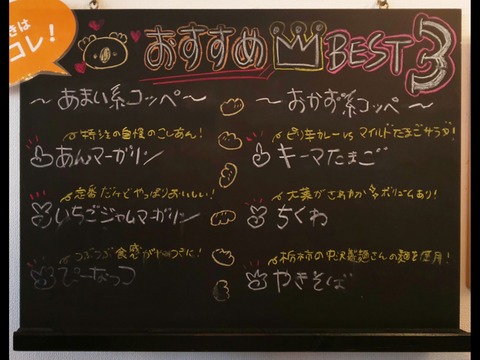 きは
コレ！
おすすめ BEST3
～あまい系コッペ～
特注の自慢のこしあん！
あんマーガリン
定番だけどやっぱりおいしい！
いちごジャムマーガリン
つぶつぶ食感がやみつきに！
ぴーなっつ
～おかず系コッペ～
ピリ辛カレーvsマイルドたまごサラダ！
キーマたまご
大葉がさわやか ボリュームあり！
ちくわ
栃木市の 製麺さんの麺を使用！
やきそば